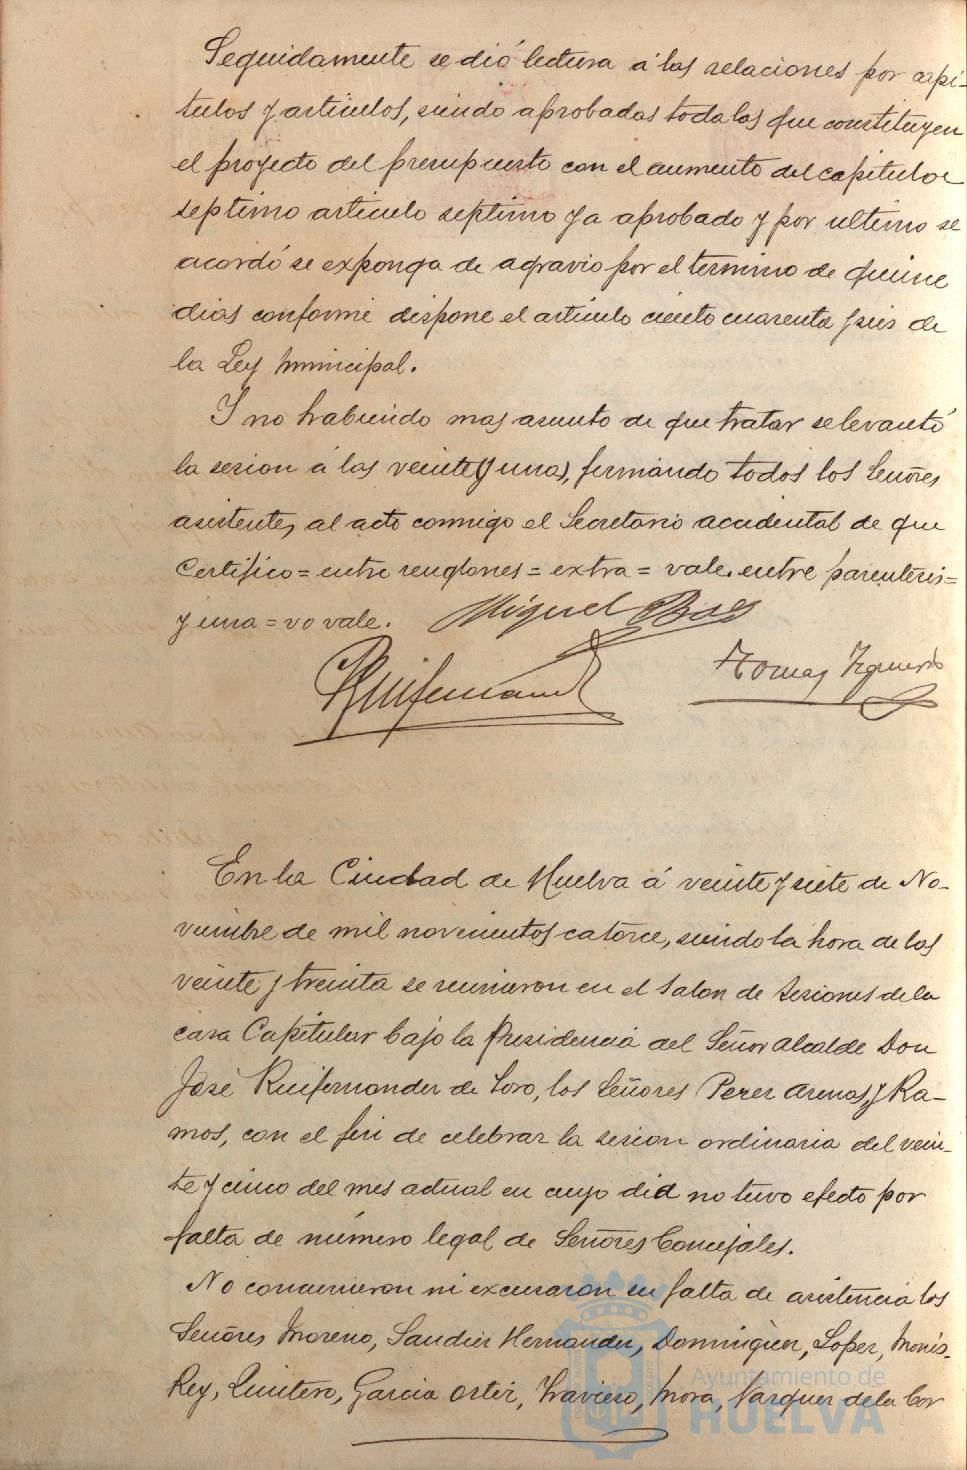 Seguidamente se dió lectura á las relaciones por capi-
tulos y articulos, siendo aprobadas todas las que constituyen
el proyecto del presupuesto con el aumento del capitulo
septimo articulo septimo ya aprobado y por ultimo se
acordó se exponga de agravio por el termino de quince
dias conforme dispone el articulo ciento cuarenta y seis de
la Ley Municipal.
Y no habiendo mas asunto de que tratar se levantó
la sesion á las veinte (y una), firmando todos los Señores
asistentes al acto conmigo el Secretario accidental de que
Certifico = entre renglones = extra = vale. entre parentesis =
y una = no vale. Miguel
Ruifernandez Tomas Izquierdo
En la Ciudad de Huelva á veinte y siete de No-
viembre de mil novecientos catorce, siendo la hora de las
veinte y treinta se reunieron en el Salon de Sesiones de la
casa Capitular bajo la Presidencia del Señor Alcalde Don
José Ruifernandez de Toro, los Señores Perez Arenas, y Ra-
mos, con el fin de celebrar la sesion ordinaria del vein-
te y cinco del mes actual en cuyo dia no tuvo efecto por
falta de número legal de Señores Concejales.
No concurrieron ni excusaron su falta de asistencia los
Señores Moreno, Sanchez Hernandez, Dominguez, Lopez, Monis-
Rey, Quintero, Garcia Ortiz, Travieso, Mora, Vazquez de la Cor
Ayuntamiento de
HUELVA